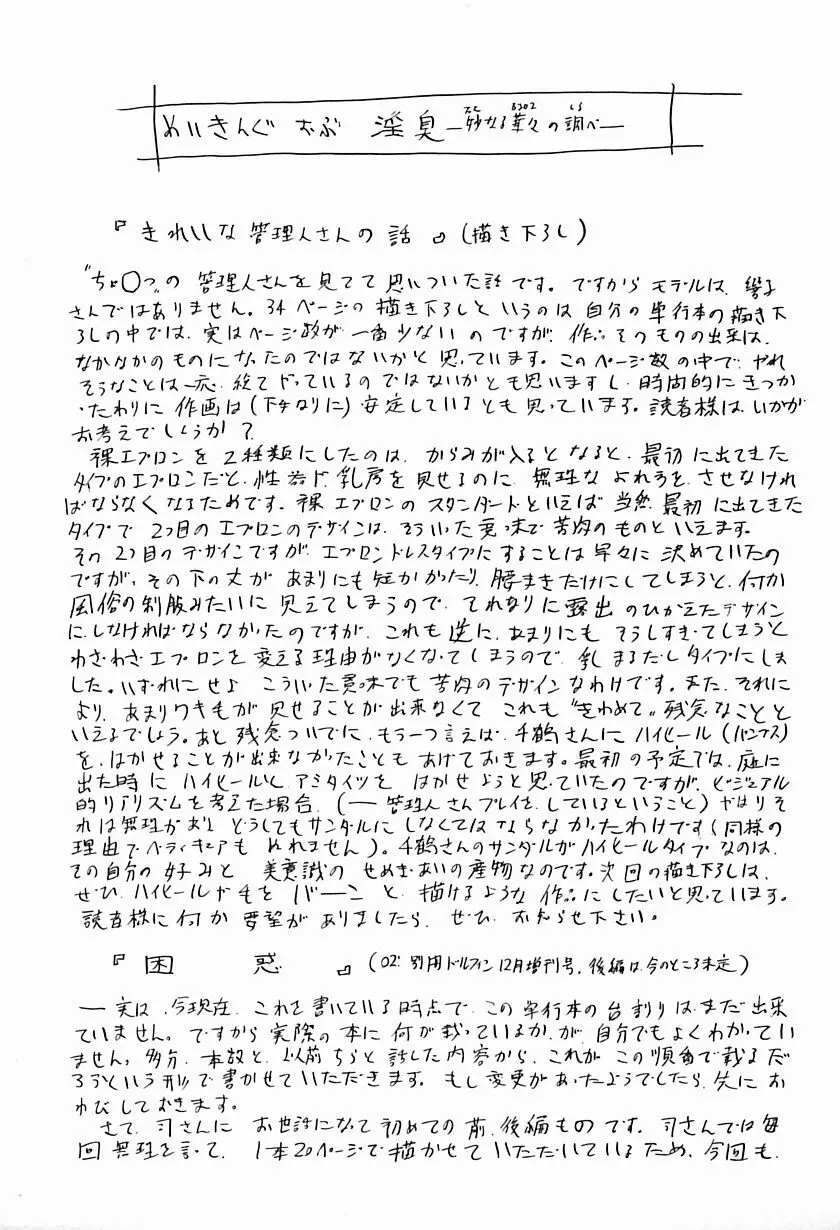 めいきんぐ おぶ 淫臭 ―妙なる華々の調べ―
『きれいな管理人さんの話』(描き下ろし)
"ちょ○つ"の管理人さんを見てて思いついた話です。ですからモデルは、響子
さんではありません。34ページの描き下ろしというのは自分の単行本の描き下
ろしの中では、実はページ数が一番少ないのですが、作品そのものの出来は、
なかなかのものになったのではないかと思っています。このページ数の中で、やれ
そうなことは一応、総てやっているのではないかとも思いますし、時間的にきつか
ったわりに作画は(下手なりに)安定しているとも思っています。読者様は、いかが
お考えでしょうか?
裸エプロンを2種類にしたのは、からみが入るとなると、最初に出てきた
タイプのエプロンだと、性器や乳房を見せるのに、無理なよれ方をさせなけれ
ばならなくなるためです。裸エプロンのスタンダードといえば当然、最初に出てきた
タイプで2つ目のエプロンのデザインは、そういった意味で苦肉のものといえます。
その2つ目のデザインですが、エプロンドレスタイプにすることは早々に決めていたの
ですが、その下の丈があまりにも短かかったり、腰まきだけにしてしまうと、何か
風俗の制服みたいに見えてしまうので、それなりに露出のひかえたデザイン
にしなければならなかったのですが、これも逆に、あまりにもそうしすぎてしまうと
わざわざエプロンを変える理由がなくなってしまうので、乳まるだしタイプにしま
した。いずれにせよ こういった意味でも苦肉のデザインなわけです。また、それに
より、あまりワキ毛が見せることが出来なくて これも"きわめて"残念なことと
いえるでしょう。あと残念ついでに、もう一つ言えば、千鶴さんにハイヒール(パンプス)
を、はかせることが出来なかったこともあげておきます。最初の予定では、庭に
出た時にハイヒールと、アミタイツを はかせようと思っていたのですが、ビジュアル
的リアリズムを考えた場合、(―管理人さんプレイを、しているということ)やはりそ
れは無理があり どうしてもサンダルにしなくてはならなかったわけです(同様の
理由でペディキュアも ぬれません)。千鶴さんのサンダルがハイヒールタイプなのは、
その自分の好みと 美意識の せめぎあいの産物なのです。次回の描き下ろしは、
ぜひ、ハイヒールや毛を バーンと、描けるような 作品にしたいと思っています。
読者様に何か要望がありましたら、ぜひ、お知らせ下さい。
『困惑』(02'別冊ドルフィン12月増刊号、後編は今のところ未定)
―実は、今現在、これを書いている時点で、この単行本の台割りは、まだ出来
ていません。ですから実際の本に何が載っているか、が、自分でもよくわかってい
ません。多分、本数と、以前ちらと話した内容から、これが この順番で載るだ
ろうという形で書かせていただきます。もし変更があったようでしたら、先にお
わびしておきます。
さて、司さんに お世話になって初めての前、後編ものです。司さんでは毎
回無理を言って、1本20ページで描かせて いただいているため、今回も、